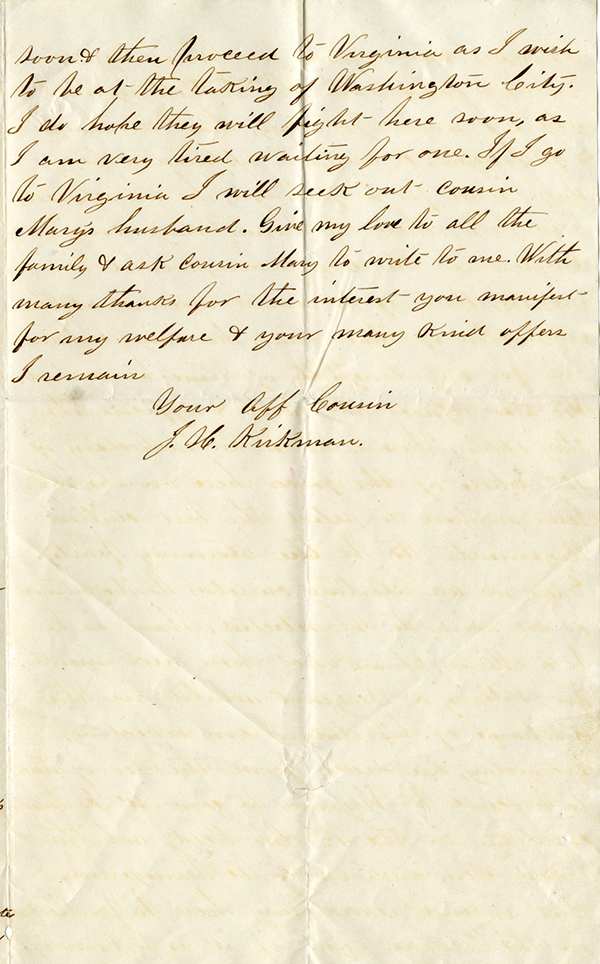 soon & then proceed to Virginia as I wish
to be at the taking of Washington City.
I do hope they will fight here soon, as
I am very tired waiting for one. If I go
to Virginia I will seek out cousin
Mary's husband. Give my love to all the
family & ask cousin Mary to write to me. With
many thanks for the interest you manifest
for my welfare & your many kind offers
I remain
Your Aff Cousin
J. H. Kirkman.